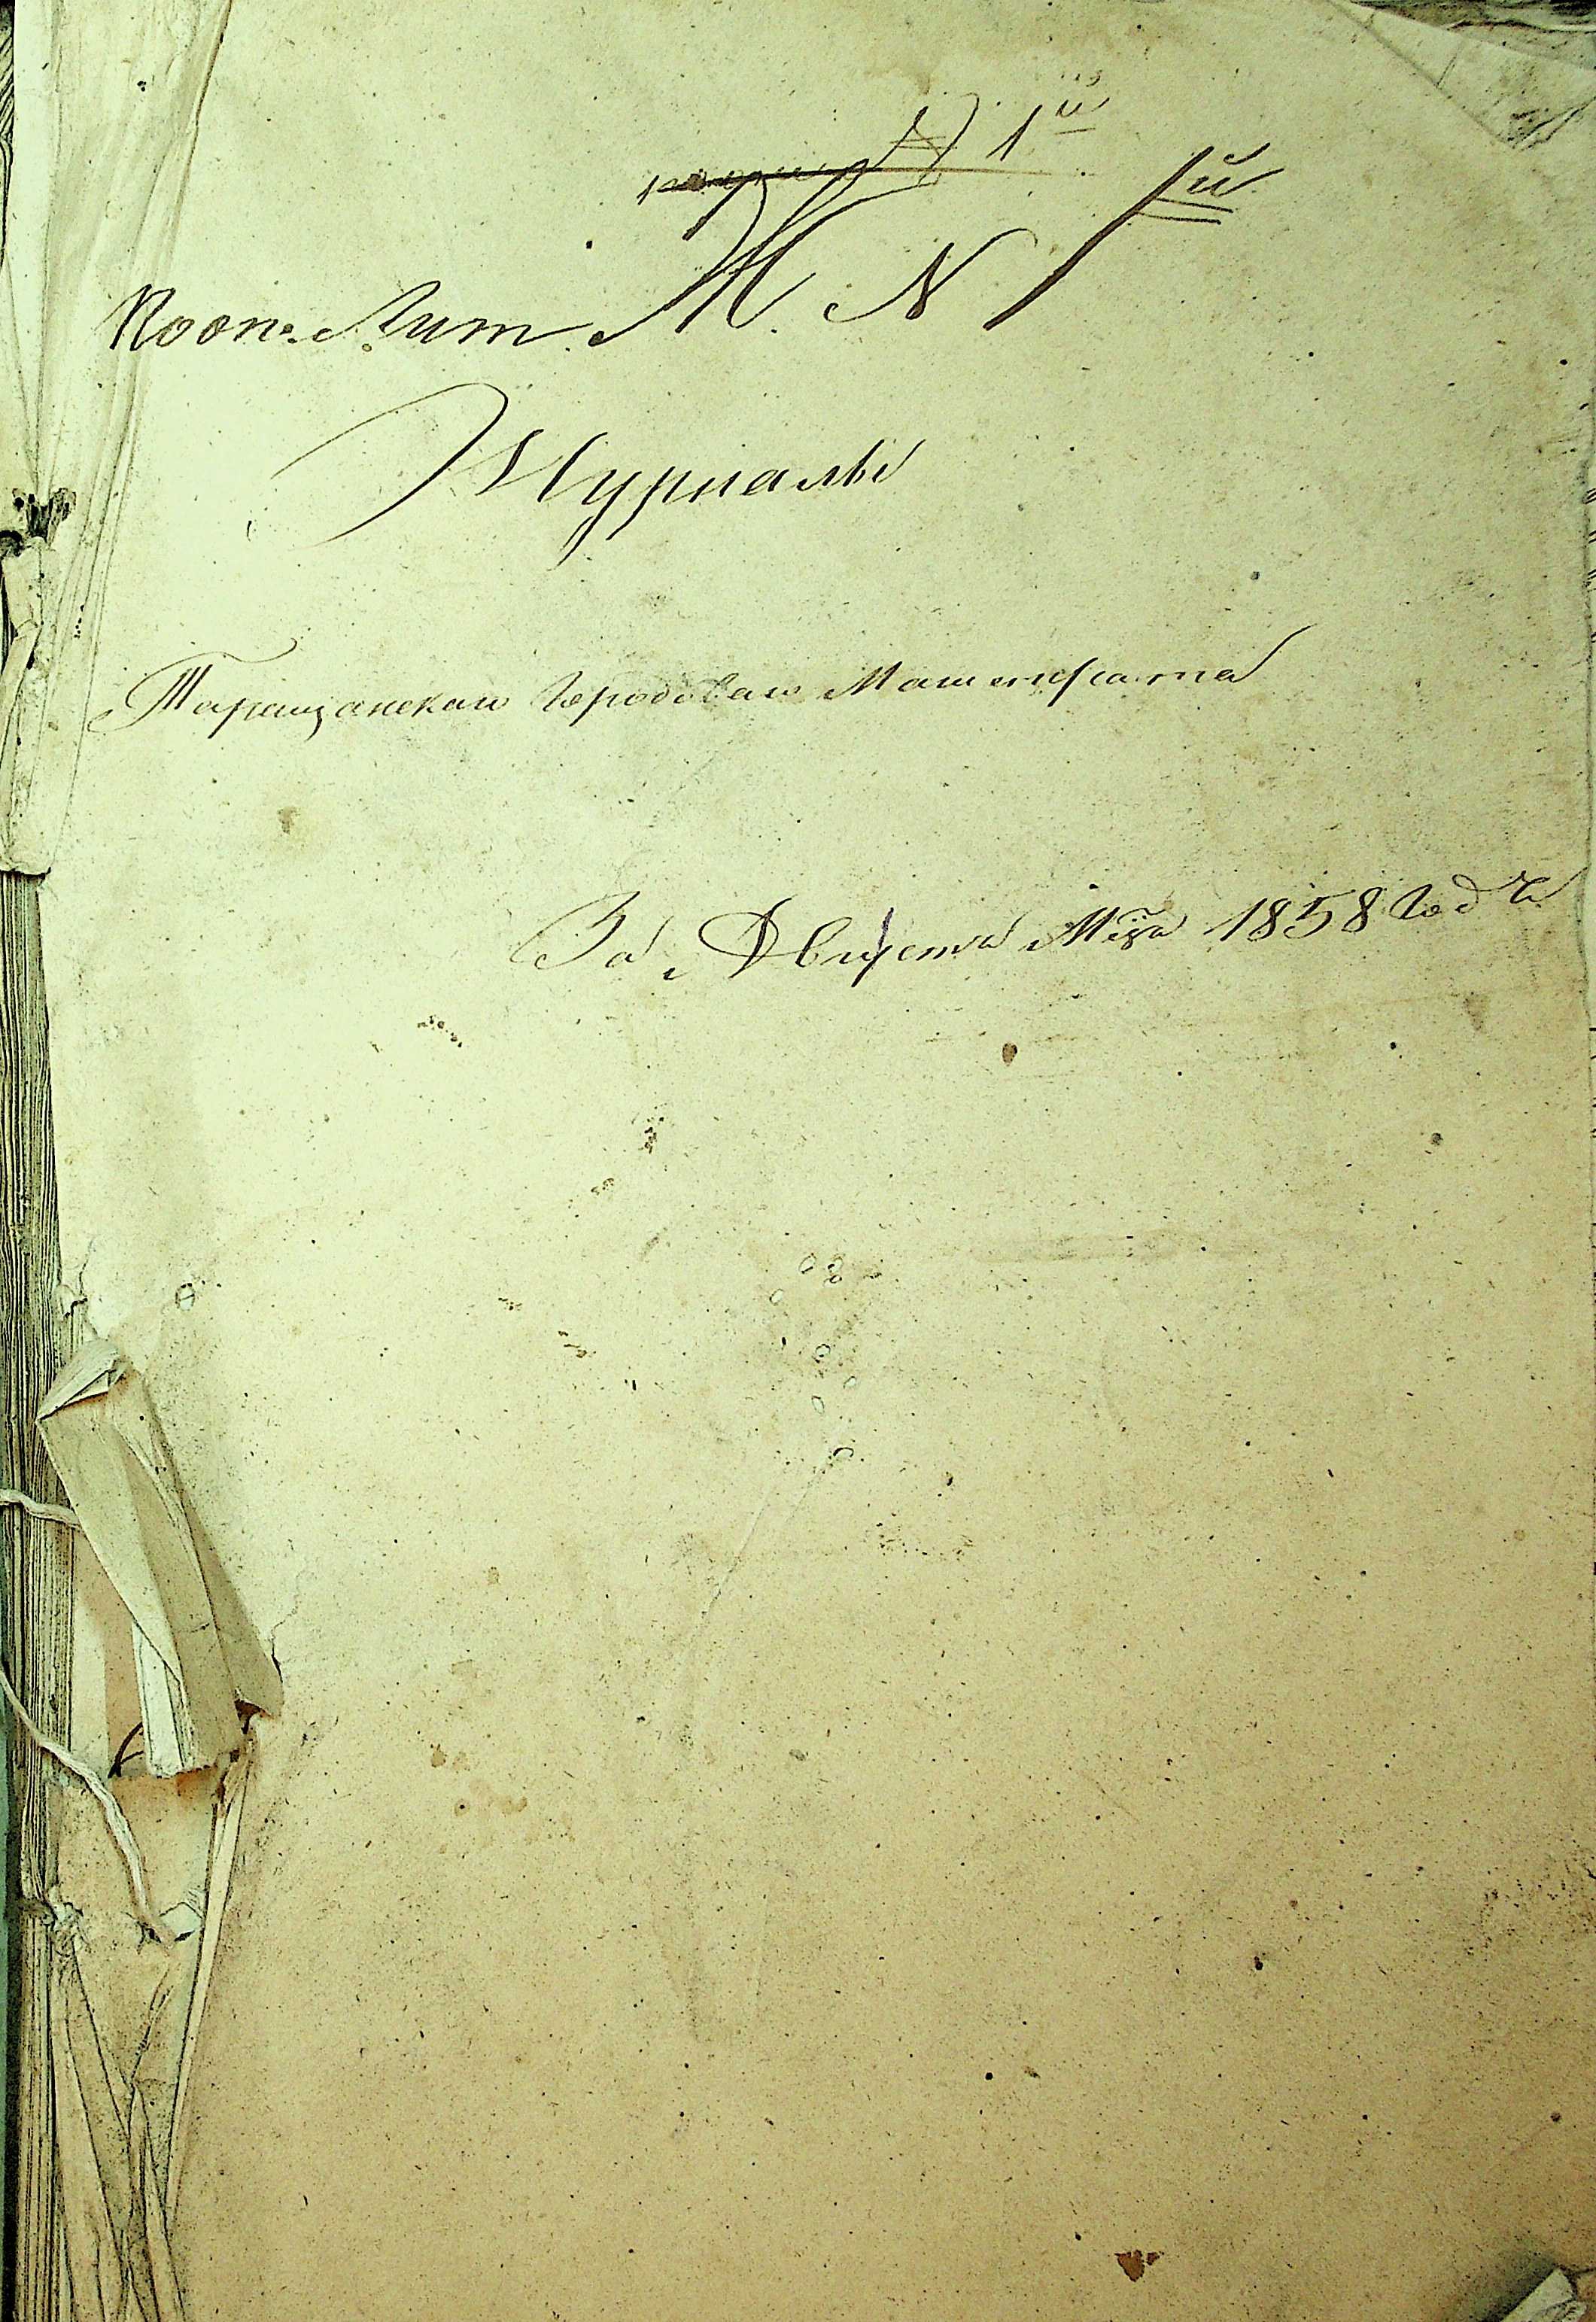 1й
По оп: Лит. Ж. N 1й
Журналы
Таращанскаго Городоваго Магистрата
За Августъ Мцъ 1858 Года